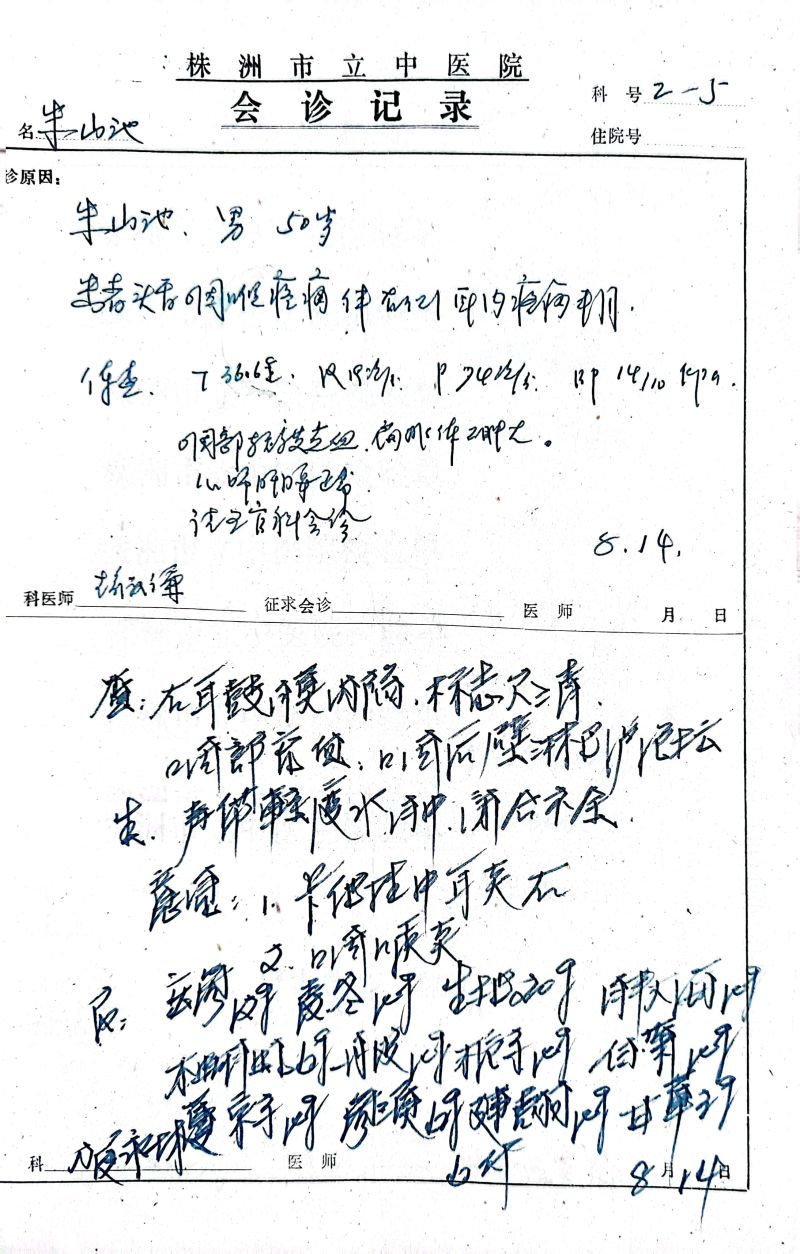 株洲市立中医院
会诊记录
科号 2-5
名 朱山池
住院号
诊原因：
朱山池. 男 50岁
患者 咽喉疼痛伴右侧耳内疼痛半月.
体查. T 36.6℃. R 19次/分. P 74次/分. BP 14/10 Kpa.
咽部 充血. 扁桃体 肿大。
心肺肝脾正常
请五官科会诊
8.14.
科医师 征求会诊 医师 月 日
右耳鼓膜内陷. 标志欠清.
咽部充血. 咽后壁淋巴滤泡增
生. 声带轻度水肿. 闭合不全.
意见：1. 卡他性中耳炎 右
2. 咽喉炎
玄参12g 麦冬10g 生地20g
柴胡6g 丹皮10g 枳壳10g 10g
10g 6g 10g 甘草3g
科 医师 6剂 8月14日